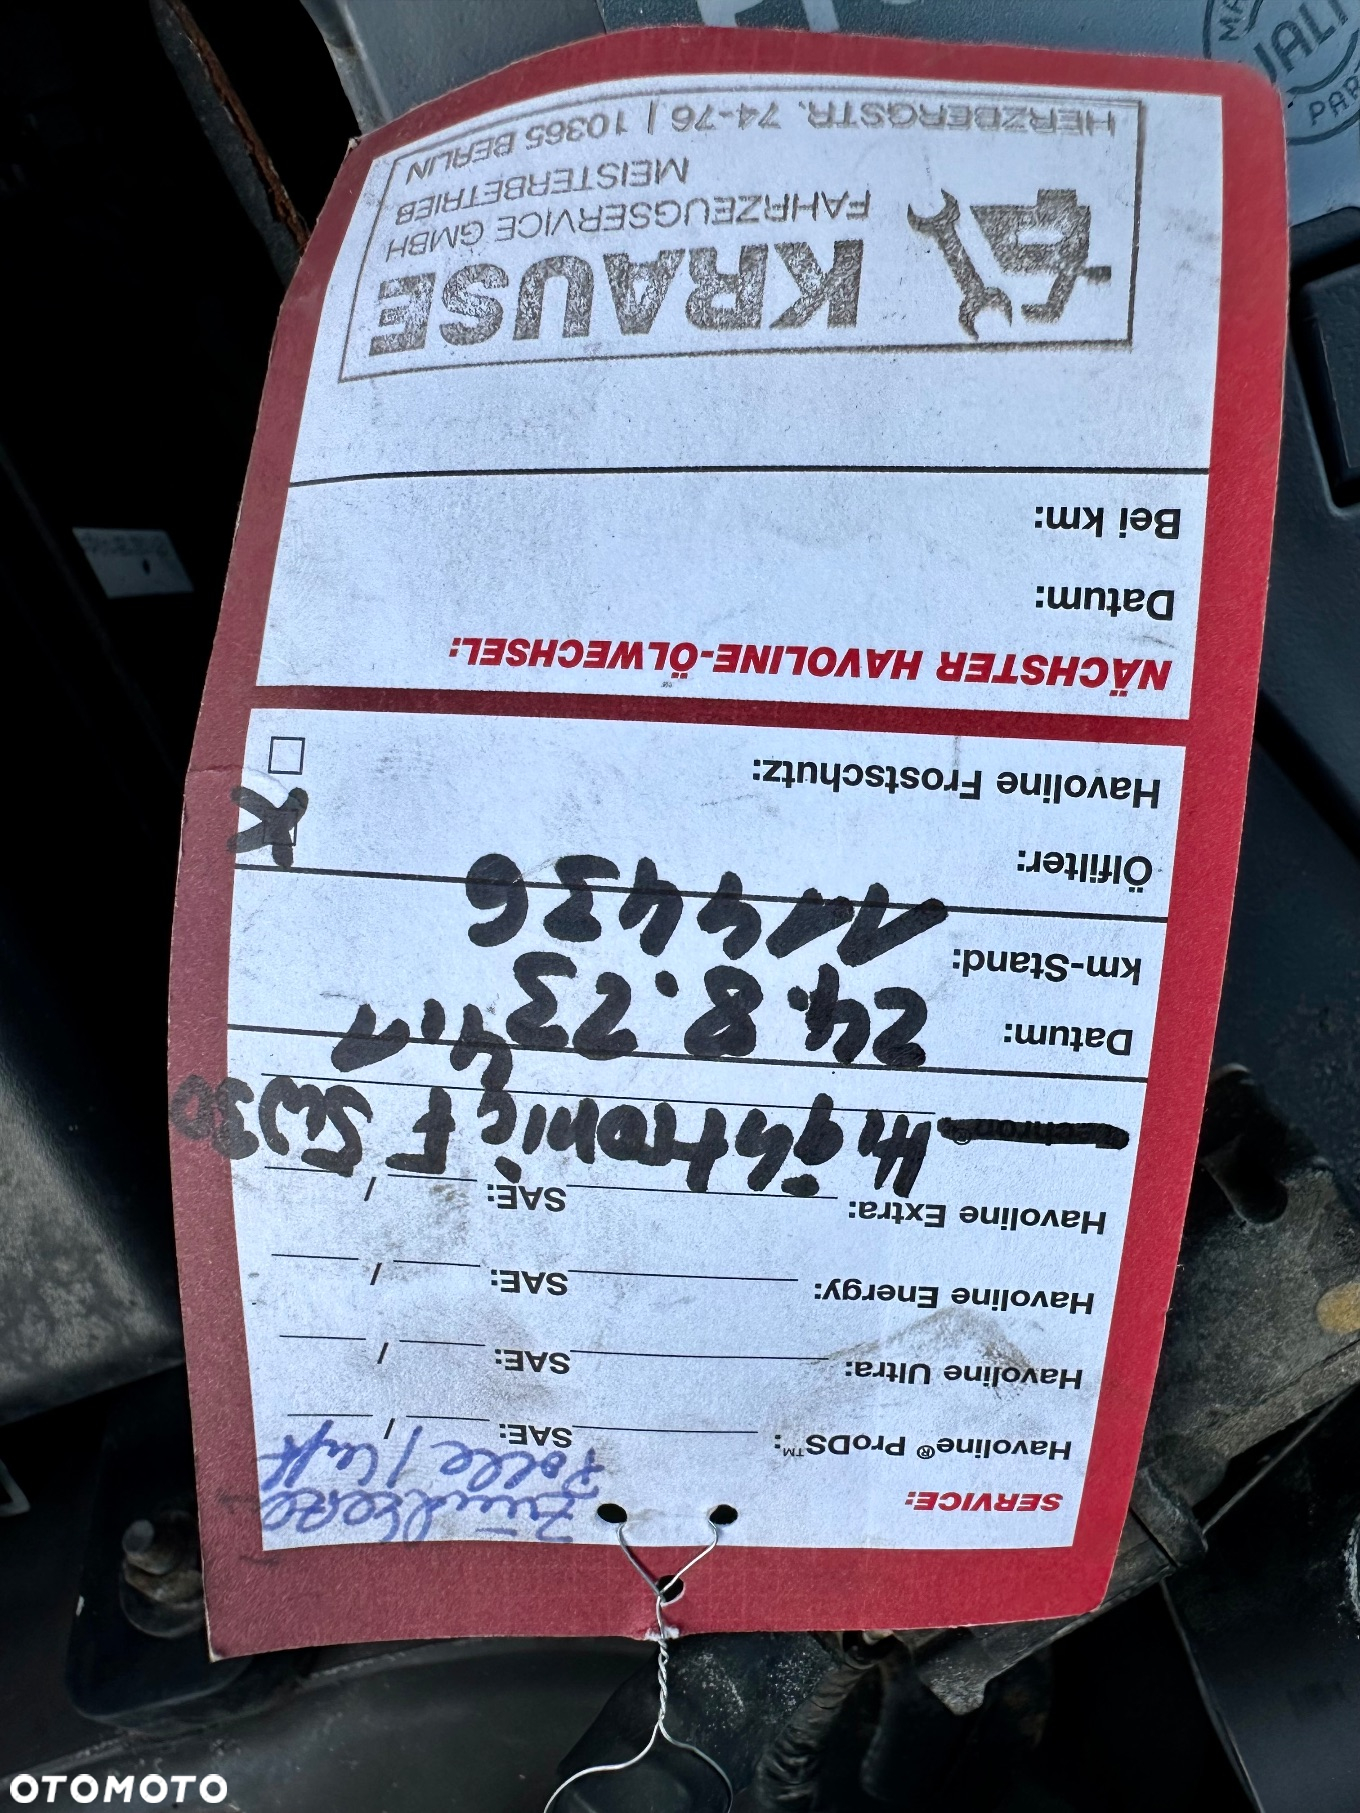 SERVICE:
Havoline® ProDS™: SAE: /
Havoline Ultra: SAE: /
Havoline Energy: SAE: /
Havoline Extra: SAE: /
Hightronic F 5W30
4,1
Datum: 24.8.23
km-Stand: 114436
Ölfilter: X
Havoline Frostschutz:
NÄCHSTER HAVOLINE-ÖLWECHSEL:
Datum:
Bei km:
KRAUSE
FAHRZEUGSERVICE GMBH
MEISTERBETRIEB
HERZBERGSTR. 74-76 | 10365 BERLIN
OTOMOTO